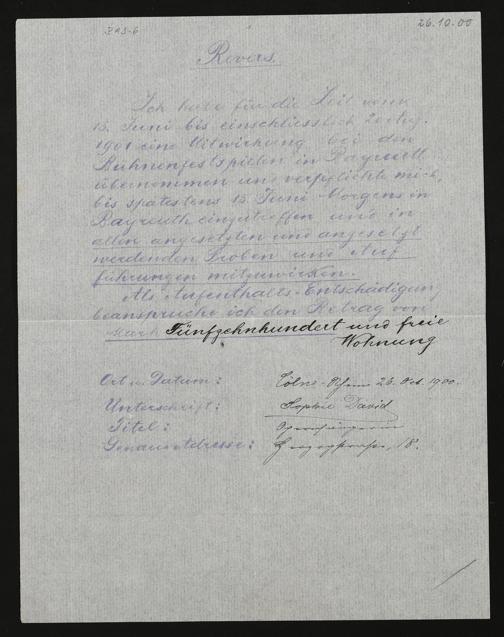 26.10.00
Revers.
Ich habe für die Zeit vom
15. Juni bis einschliesslich 20 Aug.
1901 eine Mitwirkung bei den
Bühnenfestspielen in Bayreuth
übernommen und verpflichte mich,
bis spätestens 15. Juni Morgens in
Bayreuth einzutreffen und in
allen angesetzten und angesetzt
werdenden Proben und Auf-
führungen mitzuwirken.
Als Aufenthalts-Entschädigung
beanspruche ich den Betrag von
Mark Fünfzehnhundert und freie
Wohnung
Ort u. Datum: Cölne-Rhein 26. Oct. 1900.
Unterschrift: Sophie David
Titel: Opernsängerin
Genaue Adresse: Herzogstrasse, 18.